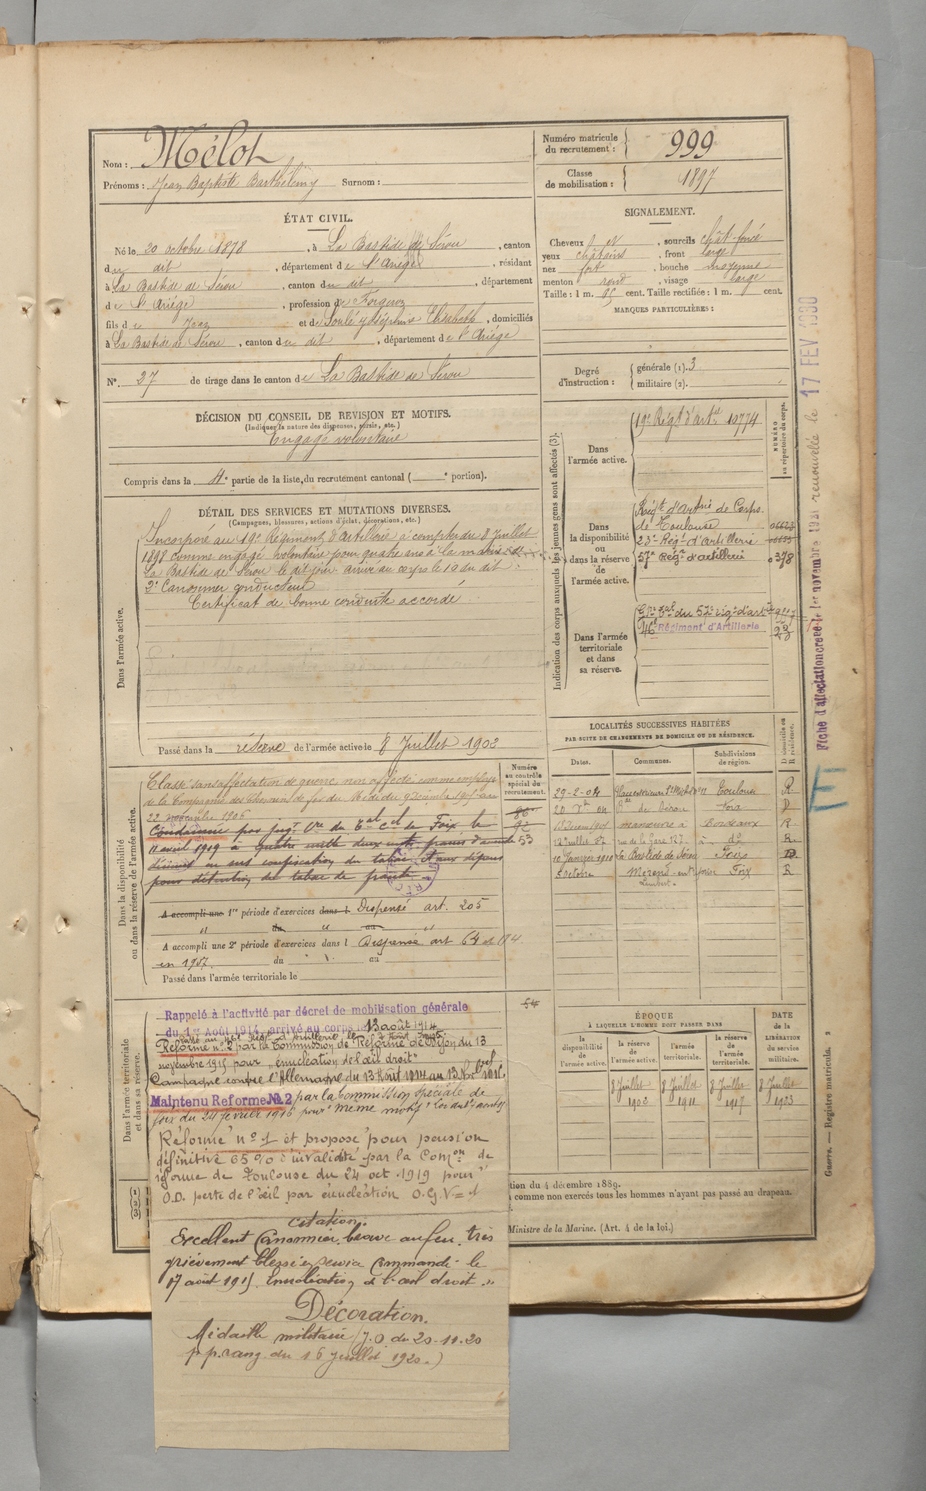 Nom : Mélot
Prénoms : Jean Baptiste Barthélemy Surnom :
Numéro matricule du recrutement : 999
Classe de mobilisation : 1897
ÉTAT CIVIL.
Né le 20 octobre 1878, à La Bastide de Sérou, canton
du dit, département de l'Ariège, résidant
à La Bastide de Sérou, canton du dit, département
de l'Ariège, profession de Forgeron
fils de Jean et de Soulé Joséphine Elisabeth, domiciliés
à La Bastide de Sérou, canton du dit, département de l'Ariége
N° 27 de tirage dans le canton de La Bastide de Sérou
SIGNALEMENT.
Cheveux et, sourcils chât-foncé
yeux châtains, front large
nez fort, bouche moyenne
menton rond, visage large
Taille : 1 m. 65 cent. Taille rectifiée : 1 m. cent.
MARQUES PARTICULIÈRES :
Degré d'instruction : générale (1). 3
militaire (2).
DÉCISION DU CONSEIL DE REVISION ET MOTIFS.
(Indiquer la nature des dispenses, sursis, etc.)
Engagé volontaire
Compris dans la 4e partie de la liste du recrutement cantonal ( e portion).
DÉTAIL DES SERVICES ET MUTATIONS DIVERSES.
(Campagnes, blessures, actions d'éclat, décorations, etc.)
Dans l'armée active.
Incorporé au 19e Régiment d'Artillerie à compter du 8 Juillet
1898 comme engagé volontaire pour quatre ans à la mairie de
La Bastide de Sérou le dit jour arrivé au corps le 10 du dit.
2e Canonnier conducteur
Certificat de bonne conduite accordé
Passé dans la réserve de l'armée active le 8 Juillet 1902
Indication des corps auxquels les jeunes gens sont affectés (3).
NUMÉRO au répertoire du corps.
Dans l'armée active.
19e Régt d'artie 10774
Dans la disponibilité ou dans la réserve de l'armée active.
Régt d'Artie de Corps
de Toulouse
23e Régt d'artillerie
57e Régt d'artillerie 0378
Dans l'armée territoriale et dans sa réserve.
Gpe tal du 57e rég. d'artie
116e Régiment d'Artillerie
Fiche d'affectation créée le 1er novembre 1921 renouvelée le 17 FEV 1930
Dans la disponibilité ou dans la réserve de l'armée active.
Numéro au contrôle spécial du recrutement.
Classé sans affectation de guerre, non affecté comme employé
de la Compagnie des Chemins de fer du Midi du 9 Décembre 1905 au
22 novembre 1906
Condamné par jugt Cre du Tal Cel de Foix le
11 avril 1919 à quatre mille deux cents francs d'amende
décimes en sus confiscation du tabac et aux dépens
pour détention de tabac de fraude
86
92
53
A accompli une 1re période d'exercices dans l Dispensé art. 205
A accompli une 2e période d'exercices dans l Dispensé art 64 et 194
en 1907 du au
Passé dans l'armée territoriale le
54
LOCALITÉS SUCCESSIVES HABITÉES
PAR SUITE DE CHANGEMENTS DE DOMICILE OU DE RÉSIDENCE.
Dates. Communes. Subdivisions de région. Domicile ou Résidence.
29-2-04 Toulouse R
20 04 Bde de Sérou Foix D
manœuvre à Bordeaux R
rue de la Gare 127 à do R
10 Janvier 1910 La Bastide de Sérou Foix D
Octobre Foix R
Dans l'armée territoriale et dans sa réserve.
Rappelé à l'activité par décret de mobilisation générale
du 1er Août 1914, arrivé au corps le 13 août 1914
Réformé n° 2 par la Commission de Réforme de Dijon du 13
novembre 1915 pour "énucléation de l'œil droit"
Campagne contre l'Allemagne du 13 Août 1914 au 13 Nbre 1915
Maintenu Réforme N° 2 par la Commission spéciale de
Foix du 24 février 1916 pour même motif
Réformé n° 1 et proposé pour pension
définitive 65% d'invalidité par la Comon de
réforme de Toulouse du 24 oct. 1919 pour
O.D. perte de l'œil par énucléation O.G. V= 1
citation :
Excellent Canonnier, brave au feu, très
grièvement blessé en service Commandé le
17 août 1915. Enucléation de l'œil droit "
Décoration.
Médaille militaire (J.O. du 20-11-20
p.p. rang du 16 juillet 1920.)
ÉPOQUE
À LAQUELLE L'HOMME DOIT PASSER DANS
DATE de la LIBÉRATION du service militaire.
la disponibilité de l'armée active.
la réserve de l'armée active.
l'armée territoriale.
la réserve de l'armée territoriale.
8 Juillet 1902
8 Juillet 1911
8 Juillet 1917
8 Juillet 1923
tion du 4 décembre 1889.
comme non exercés tous les hommes n'ayant pas passé au drapeau.
Ministre de la Marine. (Art. 4 de la loi.)
Guerre. — Registre matricule. 2